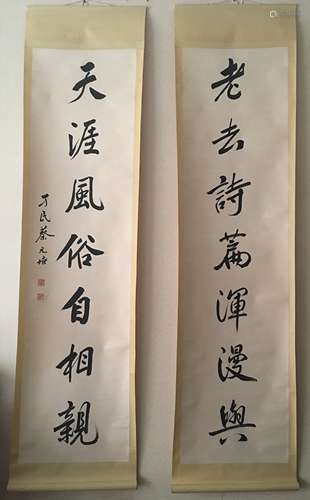 老去詩篇渾漫與
天涯風俗自相親
孑民蔡元培